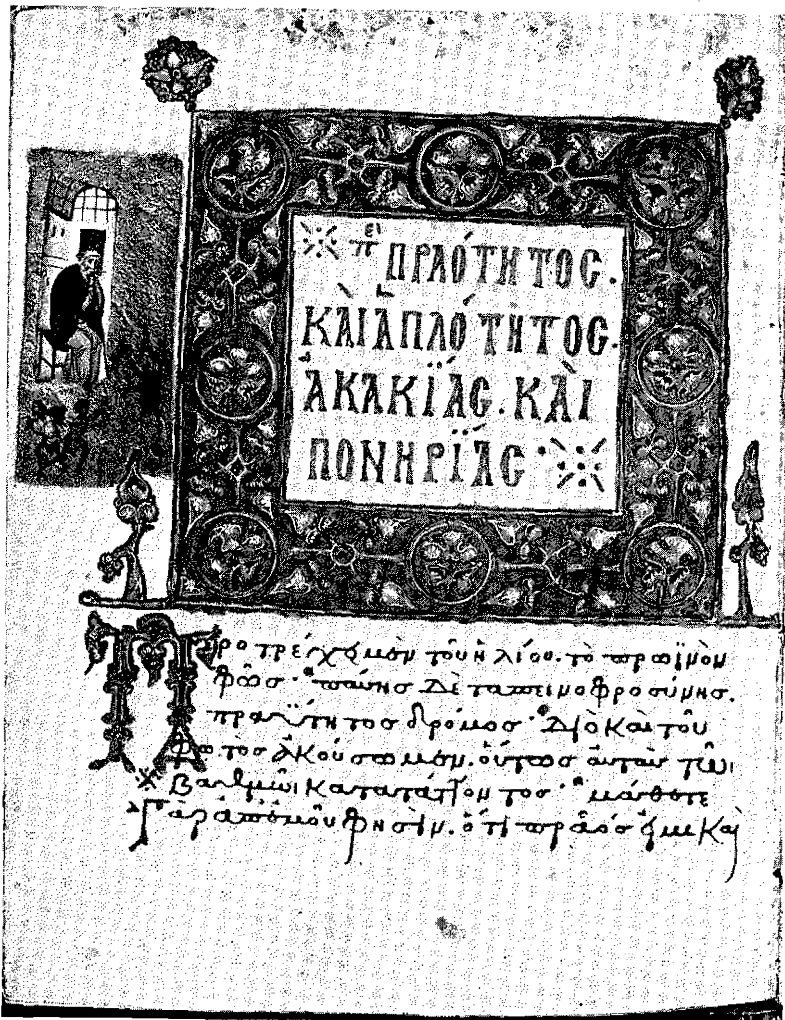 πει ΠΡΑΌΤΗΤΟΣ.
ΚΑῚ ἉΠΛΌΤΗΤΟΣ.
ἈΚΑΚΪ́ΑΣ. ΚΑῚ
ΠΟΝΗΡΪ́ΑΣ
Προτρέχει μὲν τοῦ ἡλίου. τὸ πρωϊνὸν
φῶς· πάσης δὲ ταπεινοφροσύνης.
πραΰτητος δρόμος· Διὸ καὶ τοῦ
φωτὸς ἀκούσωμεν. οὕτως αὐτὰς τῶι
βαθμῶι κατατάττοντος· μάθετε
Γὰρ ἀπ' ἐμοῦ φησὶν. ὅτι πρᾶός εἰμι καὶ